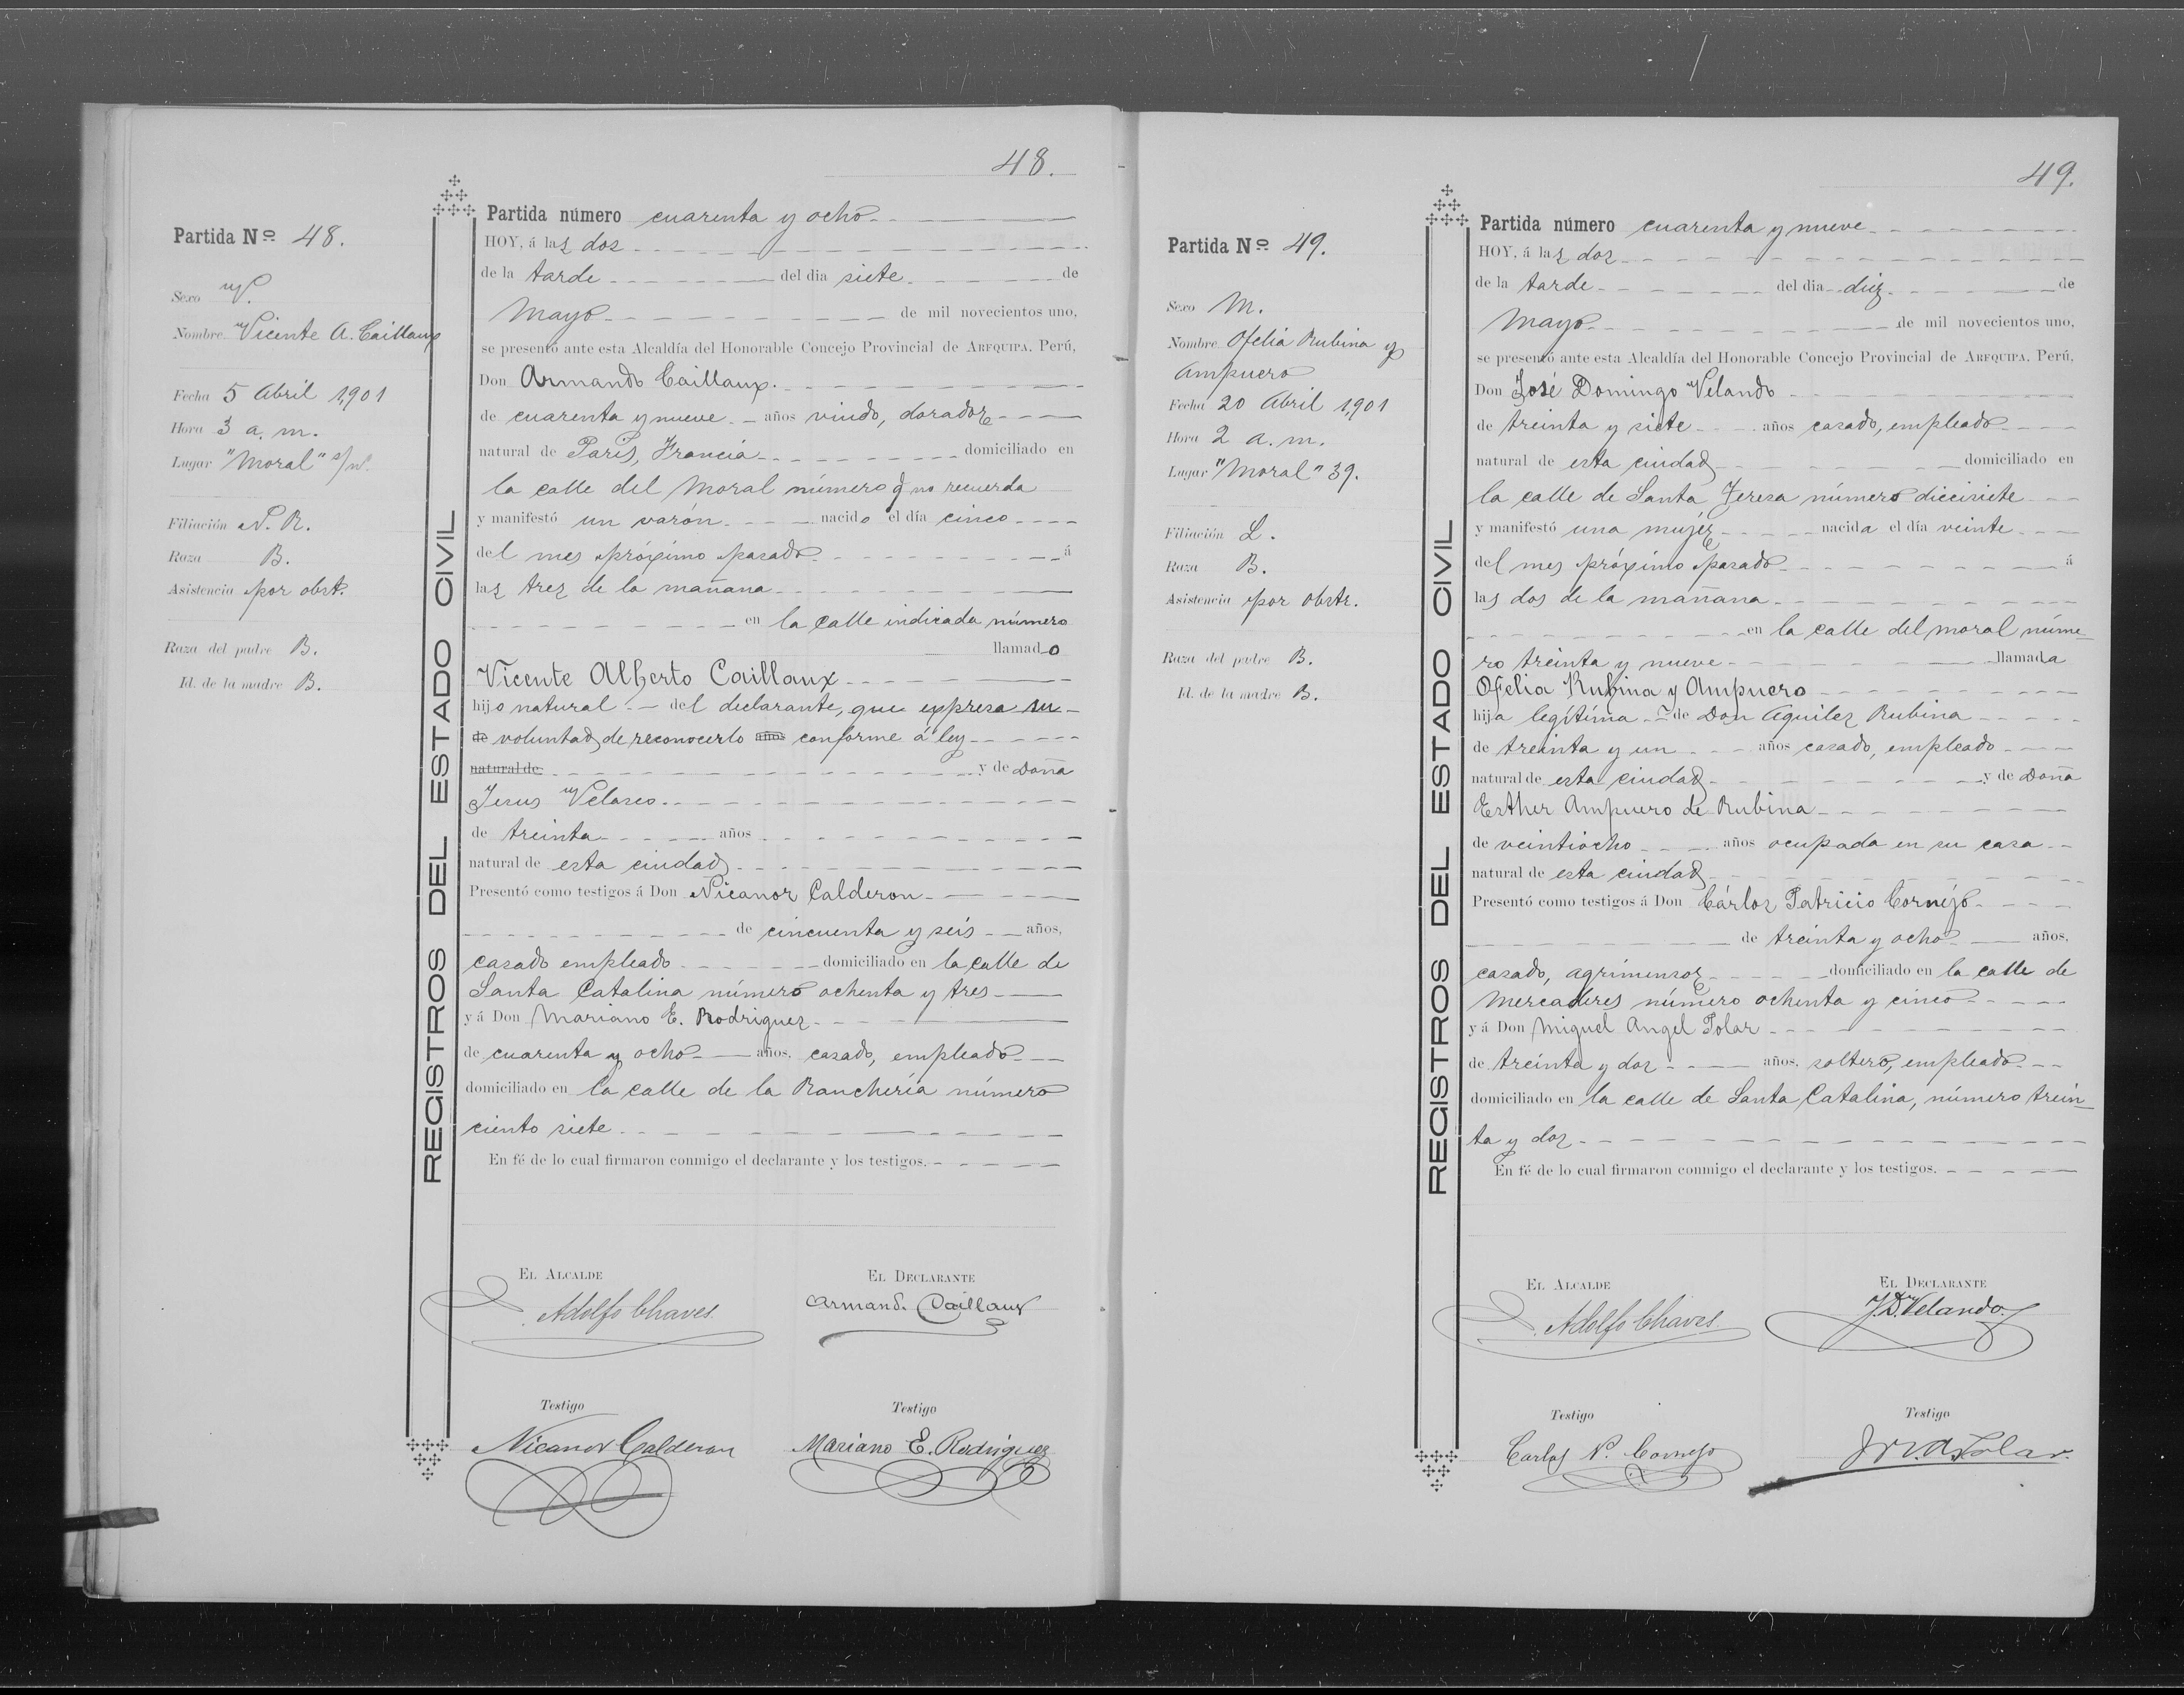 48.
Partida Nº 48.
Sexo V.
Nombre Vicente A. Caillaux
Fecha 5 Abril 1,901
Hora 3 a. m.
Lugar "Moral" s/nº.
Filiación N. R.
Raza B.
Asistencia por obst.
Raza del padre B.
Id. de la madre B.
REGISTROS DEL ESTADO CIVIL
Partida número cuarenta y ocho
HOY, á las dos
de la tarde del dia siete de
Mayo de mil novecientos uno,
se presentó ante esta Alcaldía del Honorable Concejo Provincial de AREQUIPA, Perú,
Don Armando Caillaux.
de cuarenta y nueve años viudo, dorador
natural de Paris, Francia domiciliado en
la calle del Moral número q no recuerda
y manifestó un varón nacido el día cinco
del mes próximo pasado á
las tres de la mañana
en la calle indicada número
llamado
Vicente Alberto Caillaux
hijo natural del declarante, que expresa su
de voluntad de reconocerlo años conforme á ley
natural de y de Doña
Jesus Velasco.
de treinta años
natural de esta ciudad
Presentó como testigos á Don Nicanor Calderon
de cincuenta y seis años,
casado empleado domiciliado en la calle de
Santa Catalina número ochenta y tres
y á Don Mariano E. Rodriguez
de cuarenta y ocho años, casado, empleado
domiciliado en la calle de la Ranchería número
ciento siete
En fé de lo cual firmaron conmigo el declarante y los testigos.
EL ALCALDE EL DECLARANTE
Adolfo Chaves Armand. Caillaux
Testigo Testigo
Nicanor Calderon Mariano E. Rodriguez
49.
Partida Nº 49.
Sexo M.
Nombre Ofelia Rubina y
Ampuero
Fecha 20 Abril 1,901
Hora 2 a. m.
Lugar "Moral" 39.
Filiación L.
Raza B.
Asistencia por obstr.
Raza del padre B.
Id. de la madre B.
REGISTROS DEL ESTADO CIVIL
Partida número cuarenta y nueve
HOY, á las dos
de la tarde del dia diez de
Mayo de mil novecientos uno,
se presentó ante esta Alcaldía del Honorable Concejo Provincial de AREQUIPA, Perú,
Don José Domingo Velando
de treinta y siete años casado, empleado
natural de esta ciudad domiciliado en
la calle de Santa Teresa número diecisiete
y manifestó una mujér nacida el día veinte
del mes próximo pasado á
las dos de la mañana
en la calle del moral núme
ro treinta y nueve llamada
Ofelia Rubina y Ampuero
hija legítima de Don Aquiles Rubina
de treinta y un años casado, empleado
natural de esta ciudad y de Doña
Esther Ampuero de Rubina
de veintiocho años ocupada en su casa
natural de esta ciudad
Presentó como testigos á Don Cárlos Patricio Cornéjo
de treinta y ocho años,
casado, agrimensor domiciliado en la calle de
Mercaderes número ochenta y cinco
y á Don Miguel Angel Polar
de treinta y dos años, soltero, empleado
domiciliado en la calle de Santa Catalina, número trein
ta y dos
En fé de lo cual firmaron conmigo el declarante y los testigos.
EL ALCALDE EL DECLARANTE
Adolfo Chaves J.D. Velando
Testigo Testigo
Carlos P. Cornejo M. A. Polar.